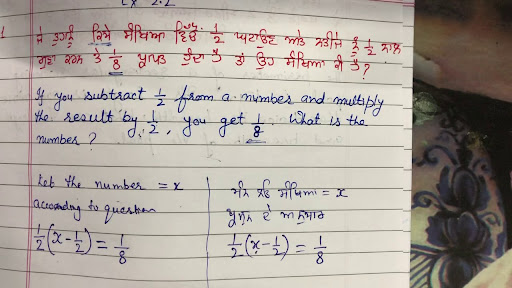 Ex 2.2
1 ਜੇ ਤੁਹਾਨੂੰ ਕਿਸੇ ਸੰਖਿਆ ਵਿੱਚੋਂ 1/2 ਘਟਾਉਣ ਅਤੇ ਨਤੀਜੇ ਨੂੰ 1/2 ਨਾਲ
ਗੁਣਾ ਕਰਨ ਤੇ 1/8 ਪ੍ਰਾਪਤ ਹੁੰਦਾ ਹੈ ਤਾਂ ਉਹ ਸੰਖਿਆ ਕੀ ਹੈ?
If you subtract 1/2 from a number and multiply
the result by 1/2, you get 1/8. What is the
number?
Let the number = x
according to question
1/2(x-1/2) = 1/8
ਮੰਨ ਲਓ ਸੰਖਿਆ = x
ਪ੍ਰਸ਼ਨ ਦੇ ਅਨੁਸਾਰ
1/2(x-1/2) = 1/8